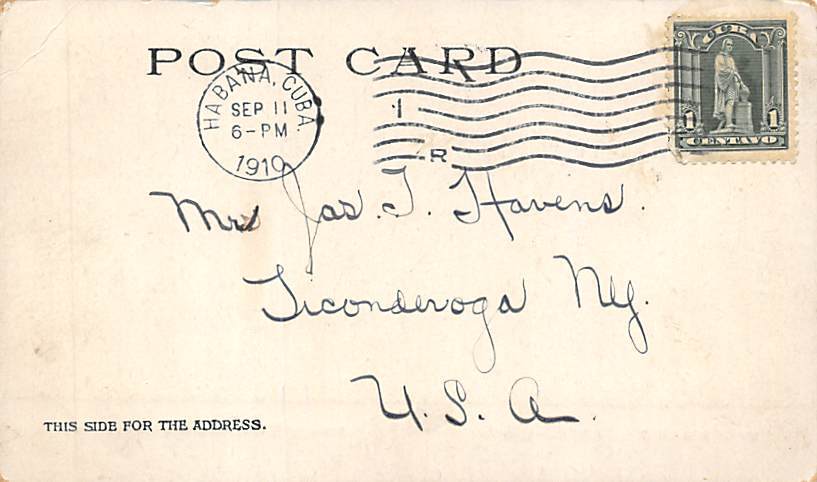 POST CARD
HABANA, CUBA.
SEP 11
6-PM
1910
1
R
CUBA
1 1
CENTAVO
Mrs Jas. T. Havens.
Ticonderoga NY.
U. S. A.
THIS SIDE FOR THE ADDRESS.